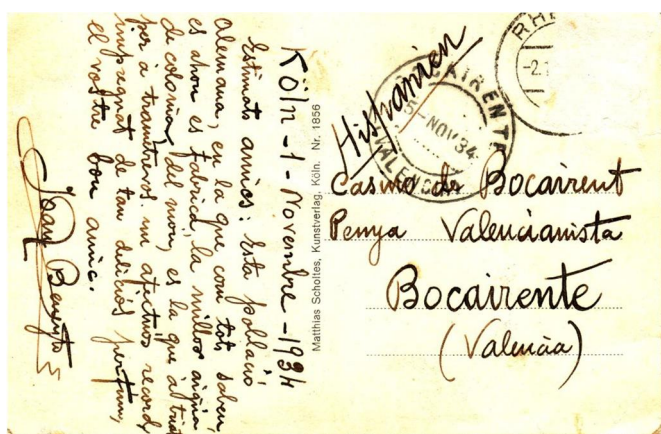 Köln - 1 - Novembre - 1934
Estimats amics: Esta població
Alemana, en la que com tots saben,
es ahon es fabrica la millor aigua
de colonia del mon, es la que a triat
per a trametrevos un afectuos record,
impregnat de tan delicios perfum,
el vostre bon amic.
Joan Beneyto
Matthias Scholtes, Kunstverlag, Köln. Nr. 1856
Hispanien
BOCAIRENTE
5-NOV34
VALENCIA
RH
-2.1
Casino de Bocairent
Penya Valencianista
Bocairente
(Valencia)